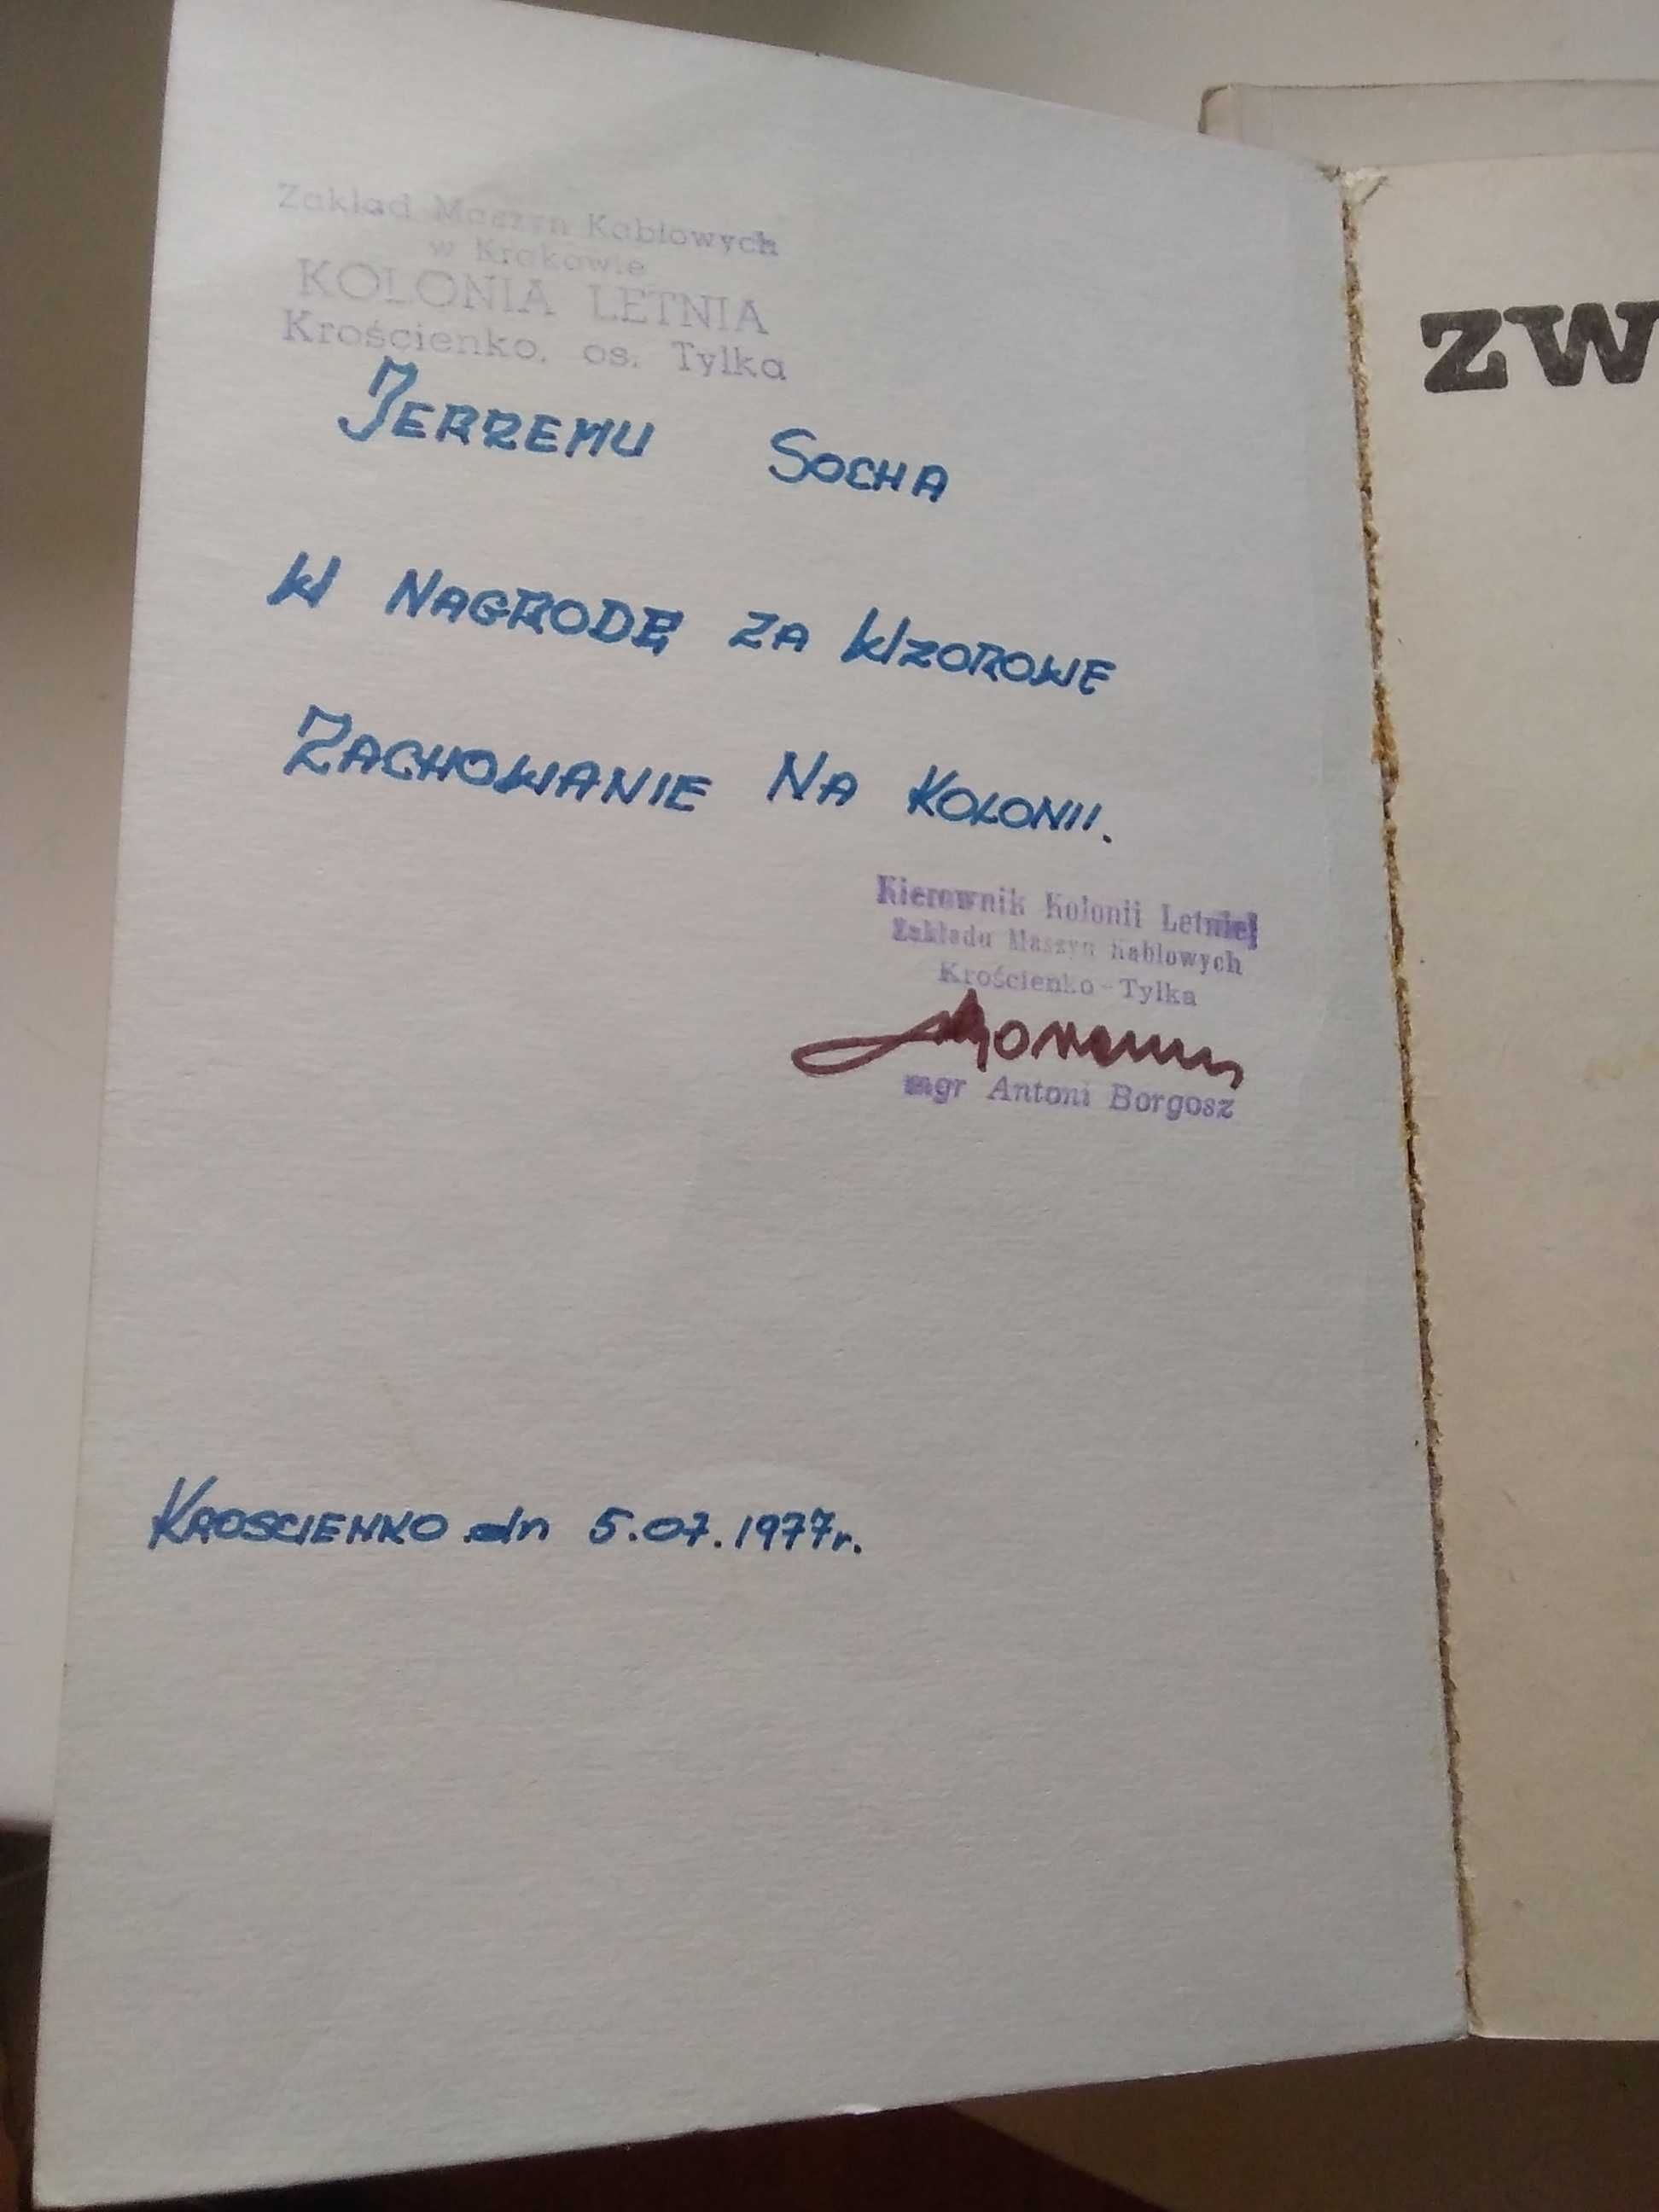 Zakład Maszyn Kablowych
w Krakowie
KOLONIA LETNIA
Krościenko, os. Tylka
JERZEMU SOCHA
W NAGRODĘ ZA WZOROWE
ZACHOWANIE NA KOLONII.
Kierownik Kolonii Letniej
Zakładu Maszyn Kablowych
Krościenko-Tylka
mgr Antoni Borgosz
KROSCIENKO dn 5.07.1977r.
ZW